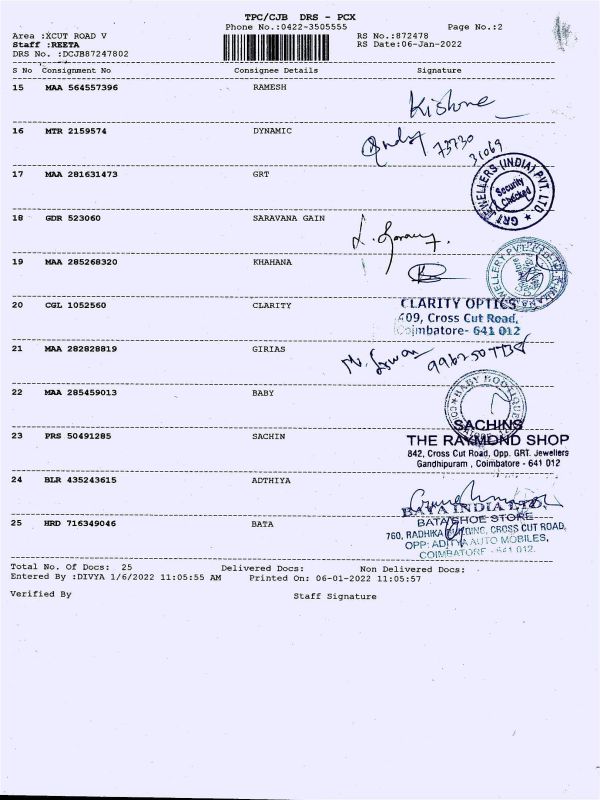 TPC/CJB DRS - PCX
Phone No.:0422-3505555 Page No.:2
Area :XCUT ROAD V RS No.:872478
Staff :REETA RS Date:06-Jan-2022
DRS No. :DCJB87247802
S No Consignment No Consignee Details Signature
15 MAA 564557396 RAMESH
Kishore
16 MTR 2159574 DYNAMIC
73730
31069
17 MAA 281631473 GRT
GRT JEWELLERS (INDIA) PVT. LTD
Security
Checked
18 GDR 523060 SARAVANA GAIN
19 MAA 285268320 KHAHANA
20 CGL 1052560 CLARITY
CLARITY OPTICS
409, Cross Cut Road,
Coimbatore- 641 012
21 MAA 282828819 GIRIAS
22 MAA 285459013 BABY
BABY BOUTIQUE
23 PRS 50491285 SACHIN
SACHINS
THE RAYMOND SHOP
842, Cross Cut Road, Opp. GRT. Jewellers
Gandhipuram , Coimbatore - 641 012
24 BLR 435243615 ADTHIYA
25 HRD 716349046 BATA
BATA INDIA LTD.
BATA SHOE STORE
760, RADHIKA BUILDING, CROSS CUT ROAD,
OPP: ADITYA AUTO MOBILES,
COIMBATORE - 641 012.
Total No. Of Docs: 25 Delivered Docs: Non Delivered Docs:
Entered By :DIVYA 1/6/2022 11:05:55 AM Printed On: 06-01-2022 11:05:57
Verified By Staff Signature